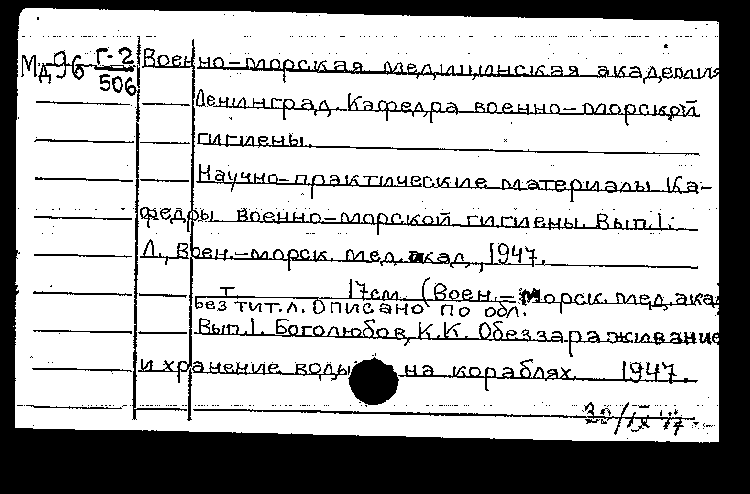 Мд96 Г-2/506 Военно-морская медицинская академия
Ленинград. Кафедра военно-морской
гигиены.
Научно-практические материалы Ка-
федры военно-морской гигиены. Вып.1.
Л., Воен.-морск. мед. акад., 1947.
т 17см. (Воен.-морск. мед. акад
Без тит.л. Описано по обл.
Вып.1. Боголюбов, К.К. Обеззараживание
и хранение воды на кораблях 1947.